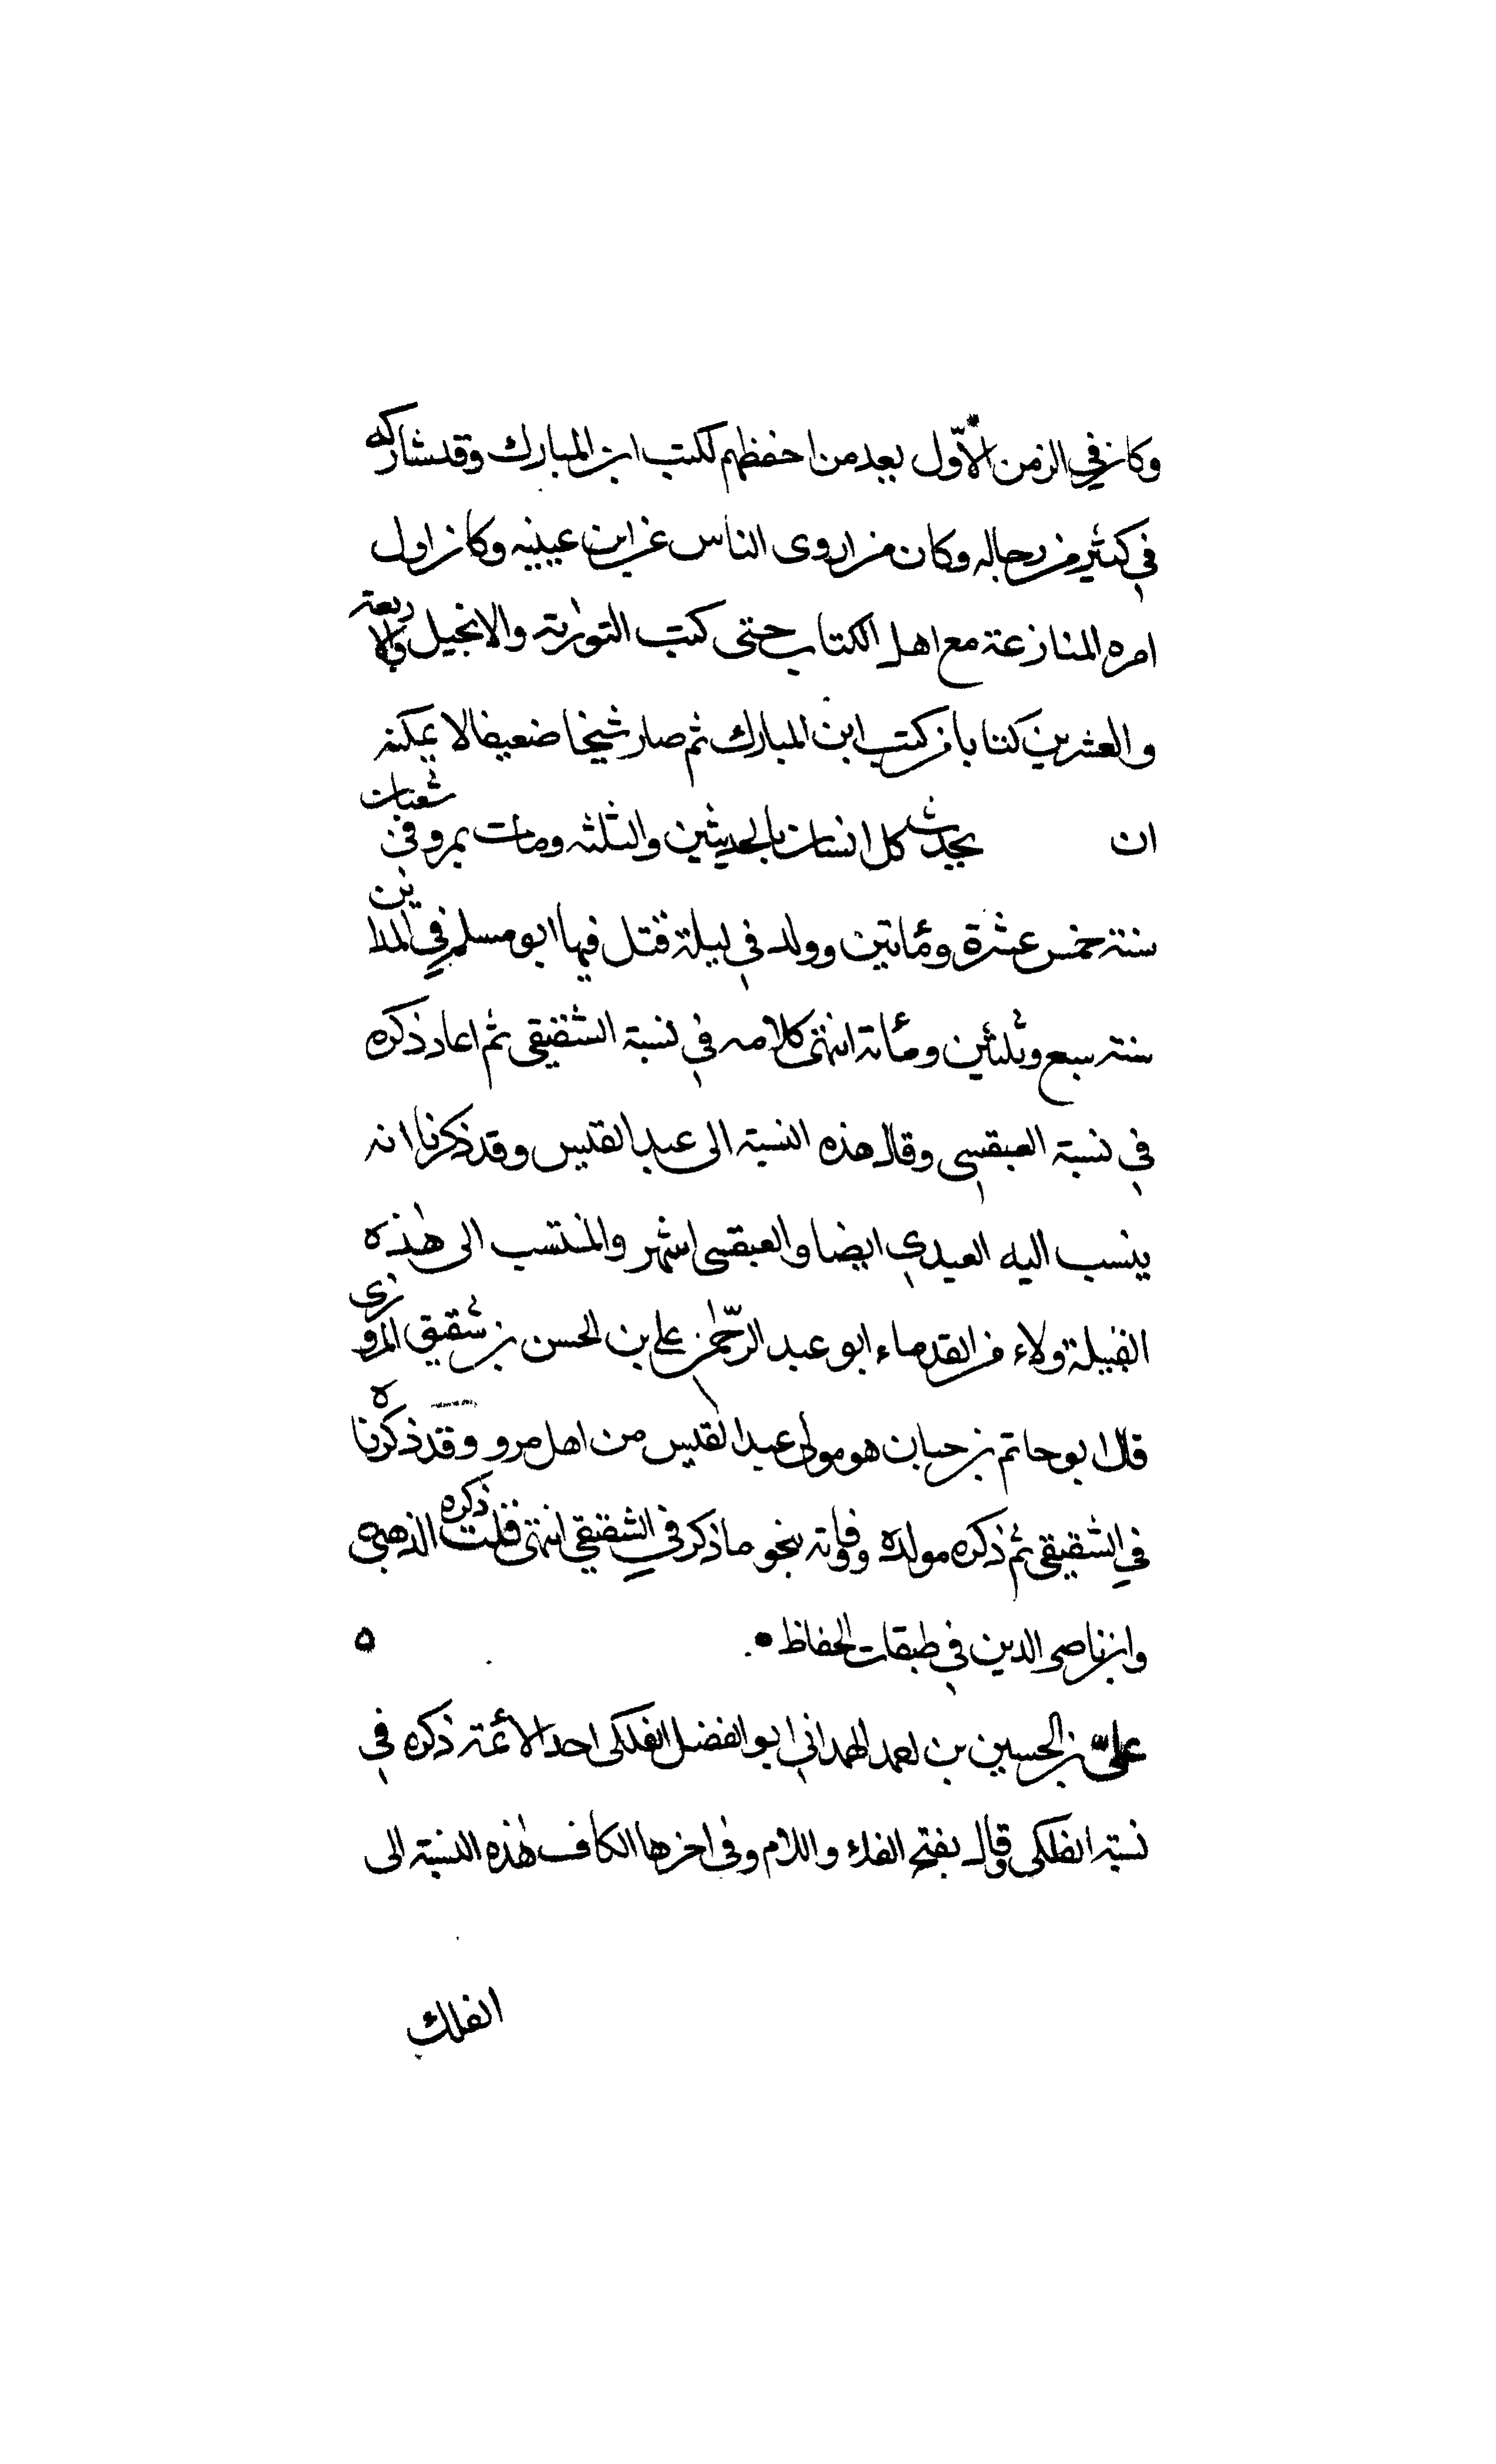 وكان في الزمن الاوّل يعد من احفظهم لكتب ابن المبارك وقد شاركه
في كثير من رجاله وكان من اروى الناس عن ابن عيينه وكان اول
امره المنازعة مع اهل الكتاب حتى كتب التورٰية والانجيل والاربعة
والعشرين كتابا من كتب ابن المبارك ثم صار شيخا ضعيفا لا يمكنه
ان يحدث كل انسان بالحديثين والثلثه ومات بمرو في شعبان
سنة خمس عشرة ومأتين وولد في ليلة قتل فيها ابو مسلم في المداين
سنة سبع وثلثين ومأة انتهى كلامه في نسبة الشقيقى ثم اعاد ذكره
في نسبة العبقسى وقال هذه النسبة الى عبد القيس وقد ذكرنا انه
ينسب اليه العبدي ايضا والعبقسى اشهر والمنتسب الى هٰذه
القبيلة ولاء من القدماء ابو عبد الرّحمٰن علي بن الحسن بن شقيق المروزى
قال ابو حاتم بن حبان هو مولى عبد القيس من اهل مرو وقد ذكرناه
في الشقيقى ثم ذكره مولده ووفاته بنحو ما ذكر في الشقيقي انتهى قلت ذكره الذهبي
وابن ناصر الدين في طبقات الحفاظ ٥
علىّ بن الحسين بن احمد الهمداني ابو الفضل الفلكى احد الأئمة ذكره في
نسبة الفلكى وقال بفتح الفاء واللام وفى اخرها الكاف هٰذه النسبة الى
الفلك